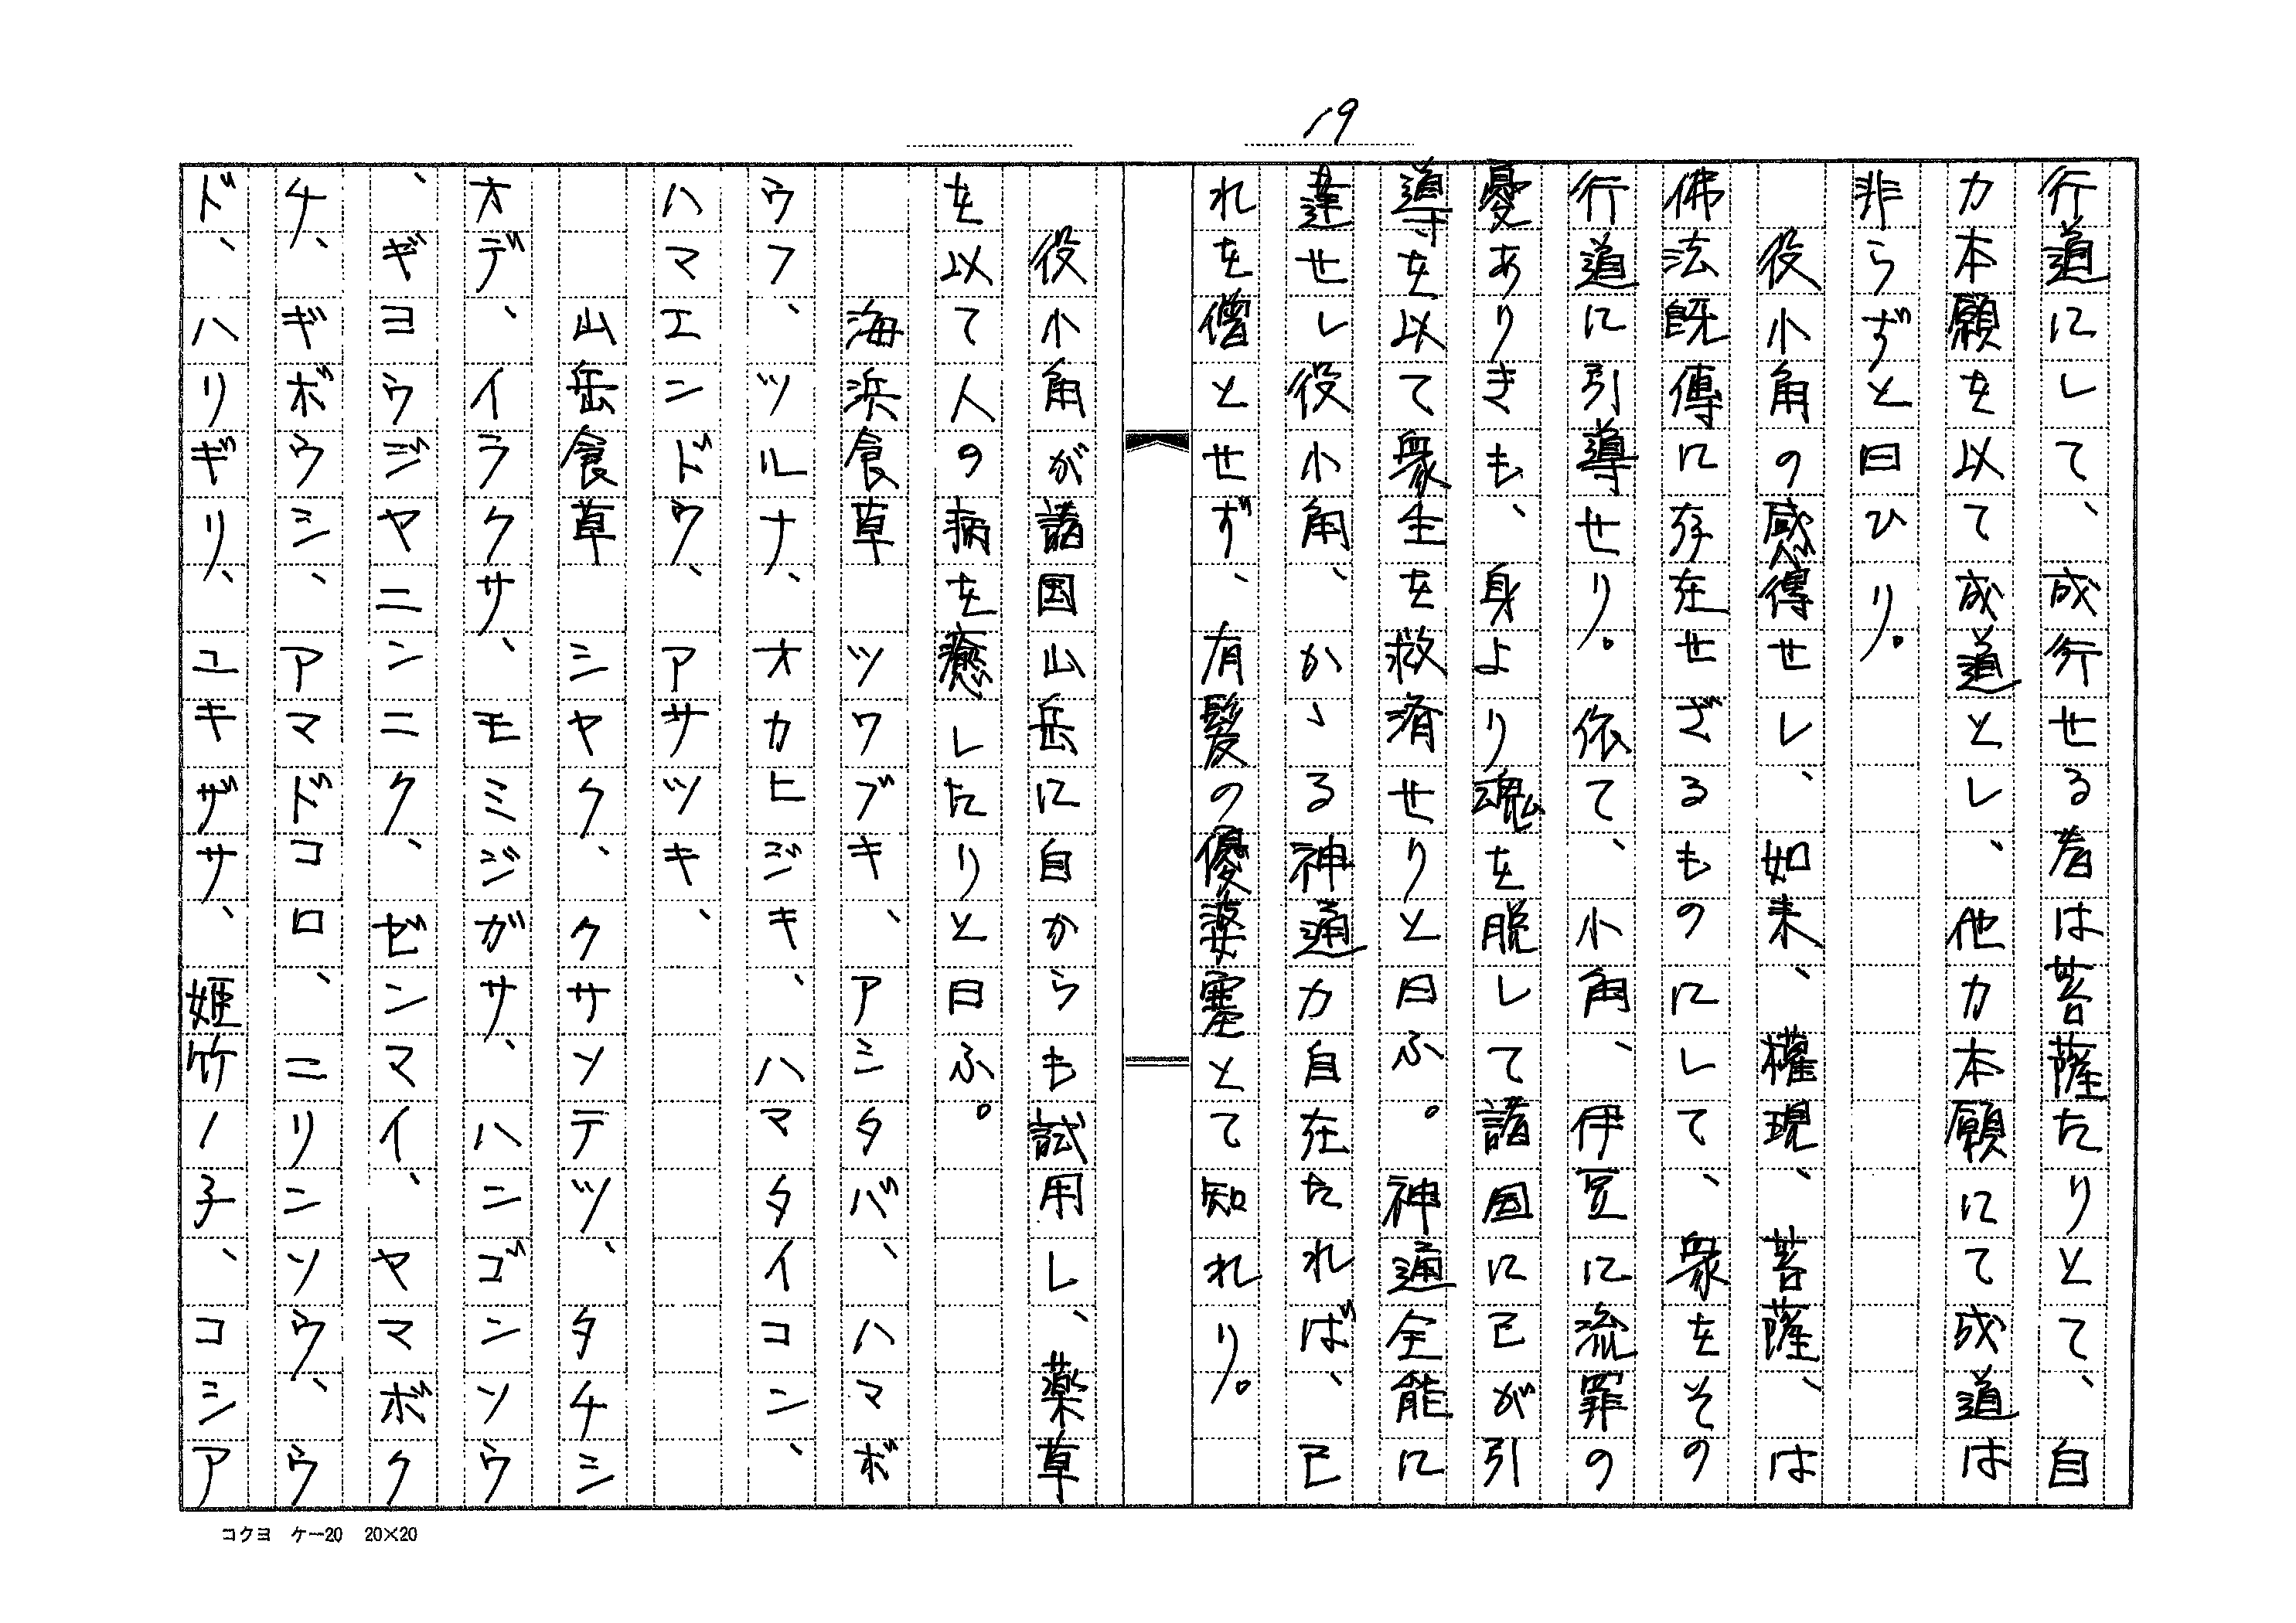 19
行道にして、成行せる者は菩薩たりとて、自
力本願を以て成道とし、他力本願にて成道は
非らずと曰ひり。
役小角の感得せし、如来、權現、菩薩、は
佛法既傳に存在せざるものにして、衆をその
行道に引導せり。依て、小角、伊豆に流罪の
憂ありきも、身より魂を脱して諸国に己が引
導を以て衆生を救済せりと曰ふ。神通全能に
達せし役小角、かゝる神通力自在たれば、己
れを僧とせず、有髪の優婆塞とて知れり。
役小角が諸国山岳に自からも試用し、薬草
を以て人の病を癒したりと曰ふ。
海浜食草　ツワブキ、アシタバ、ハマボ
ウフ、ツルナ、オカヒジキ、ハマタイコン、
ハマエンドウ、アサツキ、
山岳食草　シヤク、クサソテツ、タチシ
オデ、イラクサ、モミジガサ、ハンゴンソウ
、ギヨウジヤニンニク、ゼンマイ、ヤマボク
チ、ギボウシ、アマドコロ、ニリンソウ、ウ
ド、ハリギリ、ユキザサ、姫竹ノ子、コシア
コクヨ　ケー20　20×20